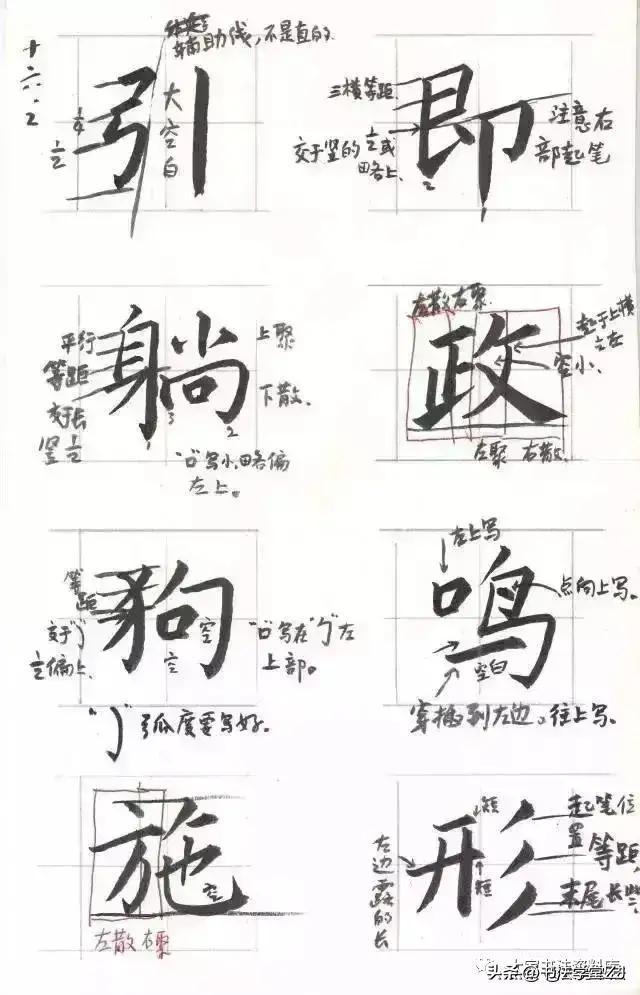 十六.2
辅助线，不是直的
引
大空白
1/4
1/2
三横等距
交于竖的1/2或
略上.
即
注意右
部起笔
2
1
平行
等距
交于长
竖1/2
躺
上聚
下散.
1
3
2
"口"写小,略偏
左上。
左散右聚
政
起于上横
之左
空小.
左聚 右散.
等距
1/2偏上.
豿
空
空
"口"写在"㇆"左
上部。
弧度要写好。
左上写
鸣
点向上写。
空白
穿插到左边。往上写。
施
空
左散 右聚
左边露的长
形
短
短
起笔位
置等距,
末尾长些.
头条@书法学堂333